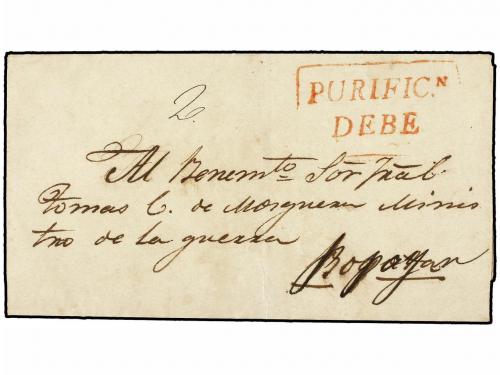 PURIFIC.N
DEBE
2.
Al Benemto Sor Gral.
tomas C. de Mosquera Minis
tro de la guerra
Popayan